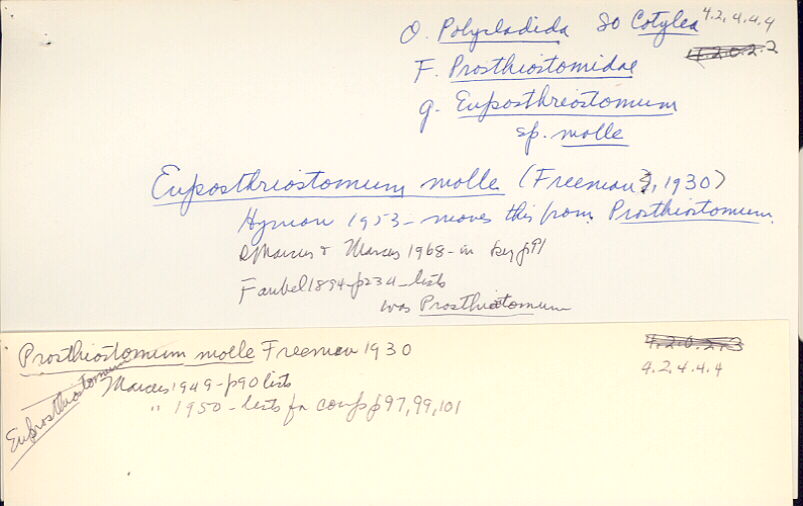 O. Polycladida SO Cotylea 4.2.4.4.4
4.2.0.2.2
F. Prosthiostomidae
g. Euposthriostomum
sp. molle
Euposthriostomum molle (Freeman, 1930)
Hyman 1953 - moves this from Prosthiostomum
Marcus & Marcus 1968 - in key p91
Faubel 1894 - p234 - lists
was Prosthiotomum
Prosthiostomum molle Freeman 1930
4.2.0.2.3
4.2.4.4.4
Marcus 1949 - p90 lists
" 1950 - lists for comp p97, 99, 101
Euprosthiostomum